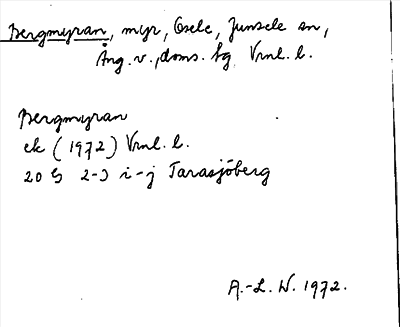 Bergmyran, myr, Osele, Junsele sn,
Ång. v., doms. hg, Vrnl. l.
Bergmyran
ek (1972) Vrnl. l.
20 G 2-3 i-j Tarasjöberg
A.-L. W. 1972.